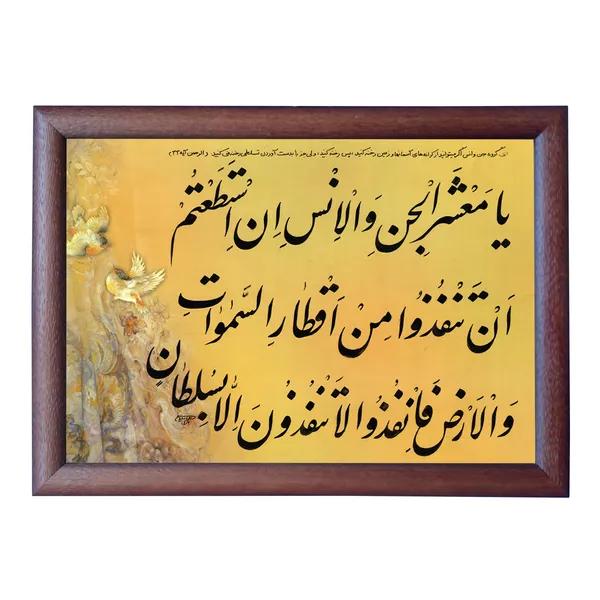 ای گروه جن و انس اگر میتوانید از کرانه‌های آسمانها و زمین رخنه کنید، پس رخنه کنید، ولی جز با بدست آوردن تسلطی رخنه نمی کنید الرحمن آیه ۳۳
یا مَعْشَرَ الْجِنِّ وَالْاِنْسِ اِنِ اسْتَطَعْتُمْ
اَنْ تَنْفُذُوا مِنْ اَقْطارِ السَّمٰوٰاتِ
وَالْاَرْضِ فَانْفُذُوا لاتَنْفُذُونَ اِلّا بِسُلْطانٍ